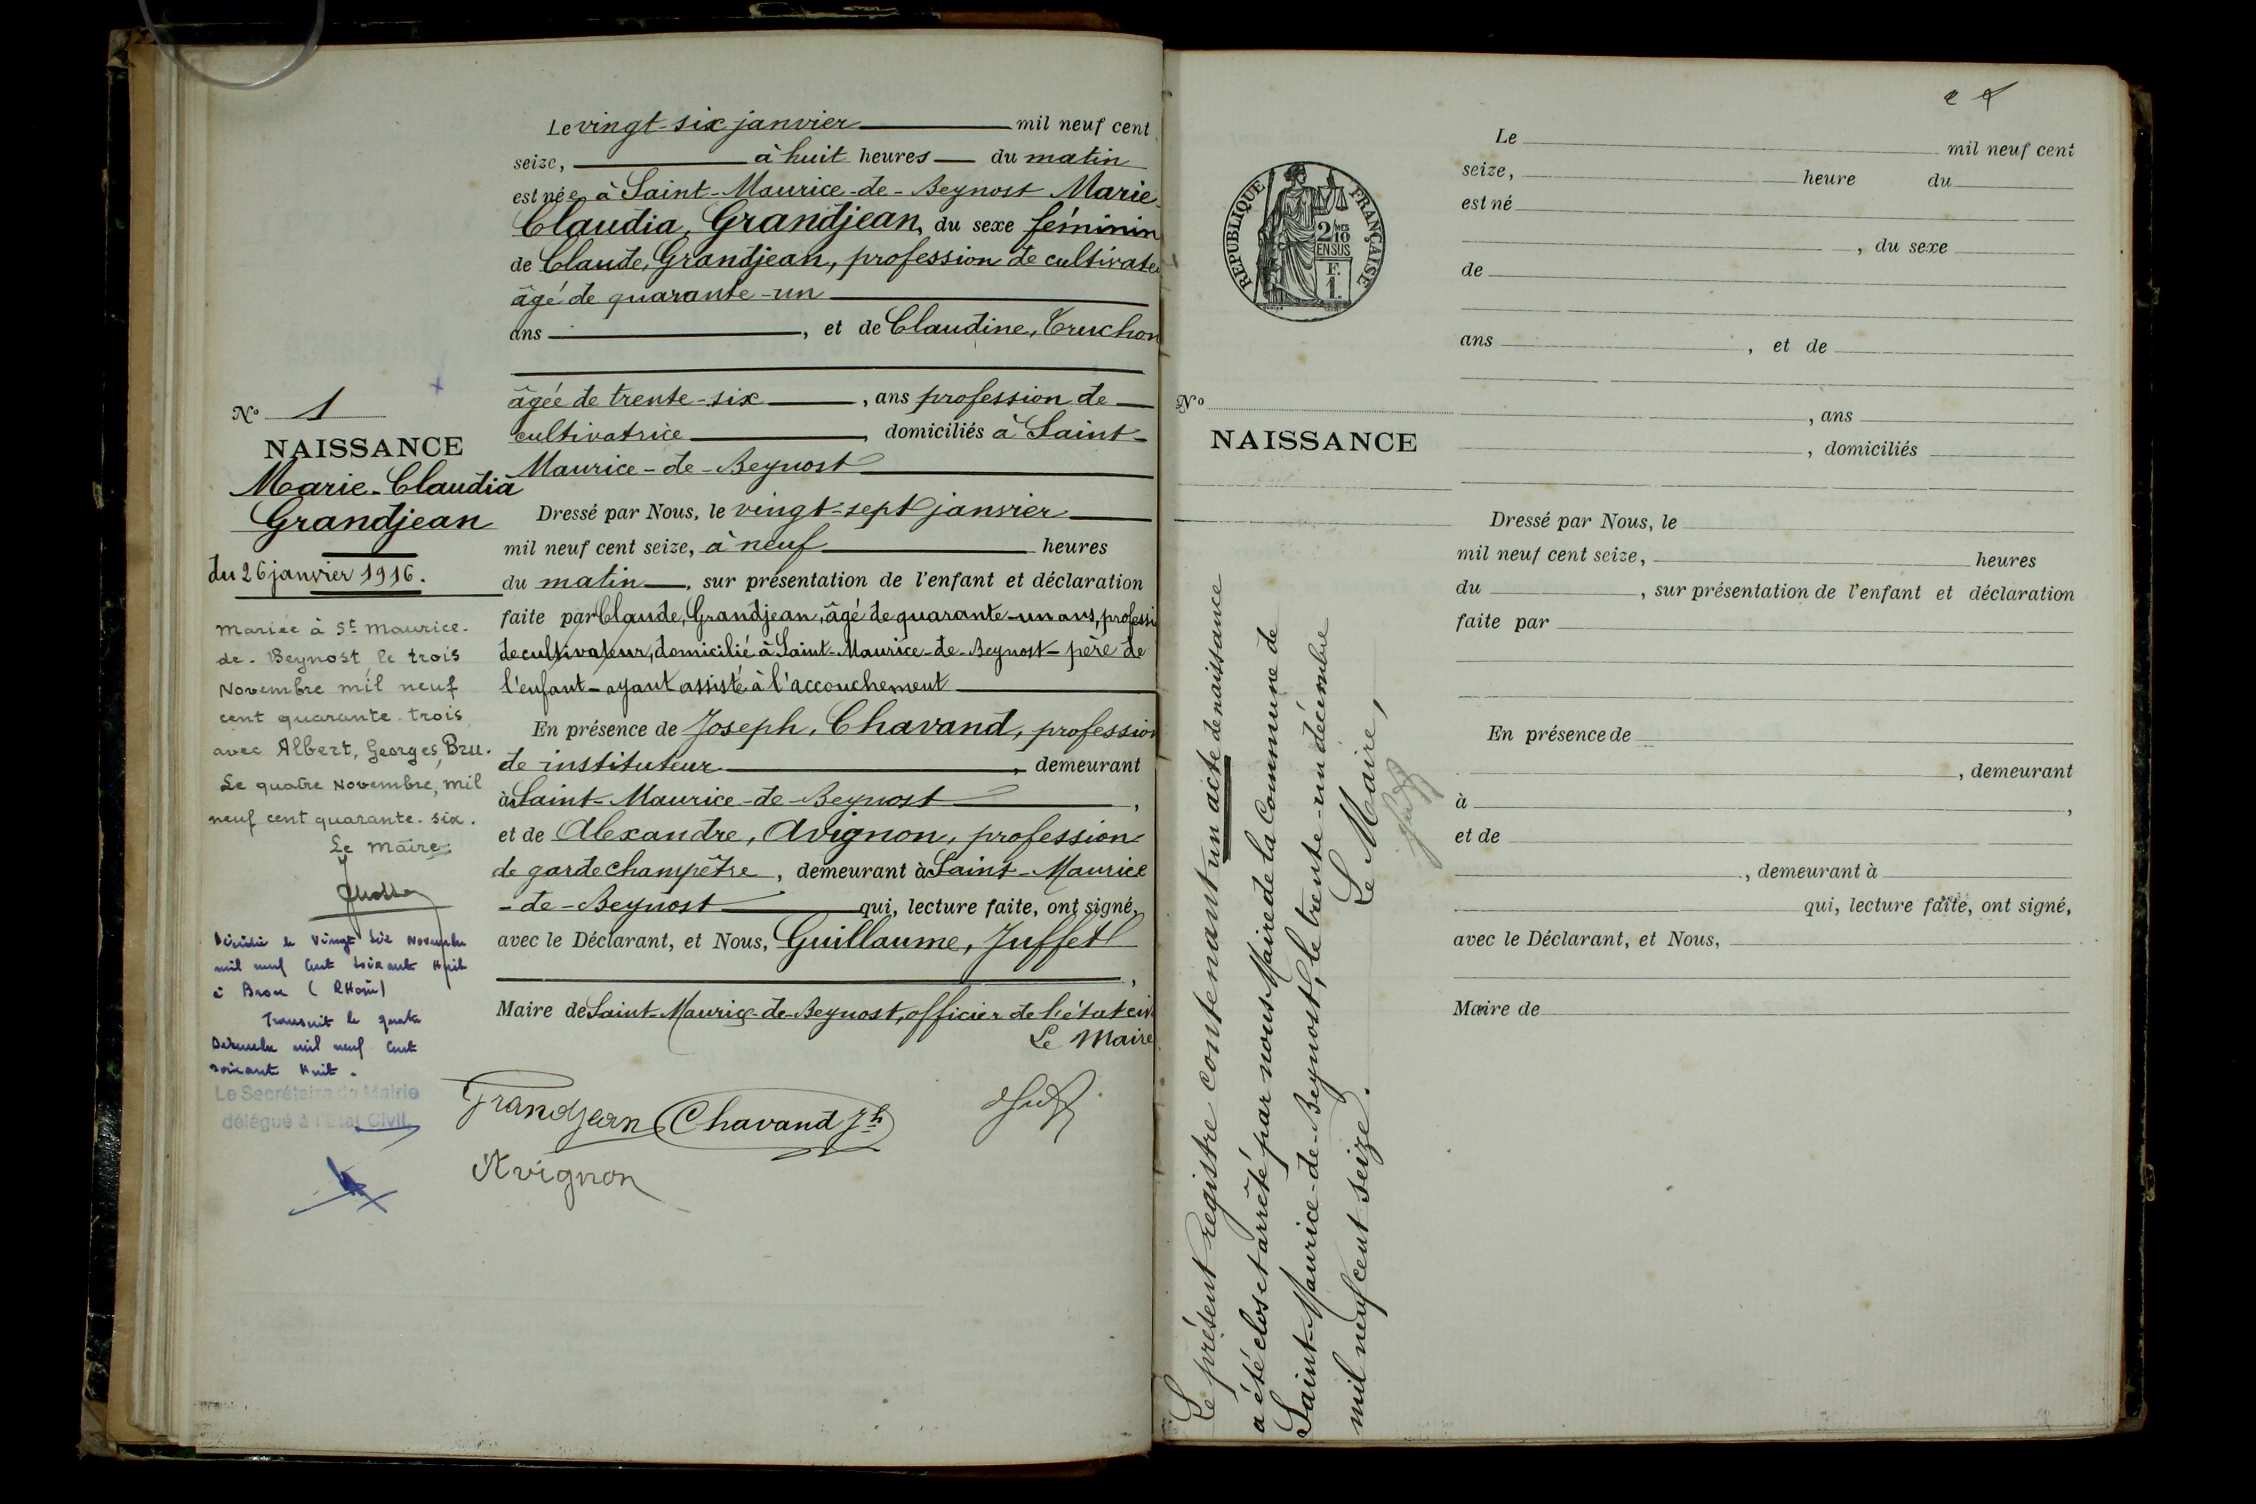 Le vingt-six janvier mil neuf cent
seize, à huit heures du matin
est née à Saint-Maurice-de-Beynost Marie-
Claudia, Grandjean, du sexe féminin
de Claude, Grandjean, profession de cultivate
âgé de quarante-un
ans , et de Claudine, Truchon
âgée de trente-six , ans profession de
cultivatrice , domiciliés à Saint-
Maurice-de-Beynost
Dressé par Nous, le vingt-sept janvier
mil neuf cent seize, à neuf heures
du matin , sur présentation de l'enfant et déclaration
faite par Claude, Grandjean, âgé de quarante-un ans, professi
de cultivateur, domicilié à Saint-Maurice-de-Beynost - père de
l'enfant - ayant assisté à l'accouchement
En présence de Joseph, Chavand, profession
de instituteur , demeurant
à Saint-Maurice-de-Beynost ,
et de Alexandre, Avignon, profession
de garde champêtre , demeurant à Saint-Maurice
-de-Beynost qui, lecture faite, ont signé,
avec le Déclarant, et Nous, Guillaume, Juffet
,
Maire de Saint-Maurice-de-Beynost, officier de l'état civ
Le Maire
Grandjean Chavand Jh
Avignon
No 1
NAISSANCE
Marie-Claudia
Grandjean
du 26 janvier 1916.
Mariée à St Maurice-
de-Beynost, le trois
Novembre mil neuf
cent quarante-trois
avec Albert, Georges, Bru.
Le quatre Novembre, mil
neuf cent quarante-six.
Le Maire:
Décédée le vingt six Novembre
mil neuf cent soixante huit
à Bron (Rhône)
Transcrit le quatre
Décembre mil neuf cent
soixante huit.
Le Secrétaire de Mairie
délégué à l'Etat Civil,
REPUBLIQUE FRANÇAISE
2/10 MES
EN SUS
F.
1.
No
NAISSANCE
Le présent registre contenant un acte de naissance
a été clos et arrêté par nous Maire de la Commune de
Saint-Maurice-de-Beynost, le trente-un décembre
mil neuf cent seize.
Le Maire,
Le mil neuf cent
seize, heure du
est né
, du sexe
de
ans , et de
, ans
, domiciliés
Dressé par Nous, le
mil neuf cent seize, heures
du , sur présentation de l'enfant et déclaration
faite par
En présence de
, demeurant
à ,
et de
, demeurant à
qui, lecture faite, ont signé,
avec le Déclarant, et Nous,
Maire de